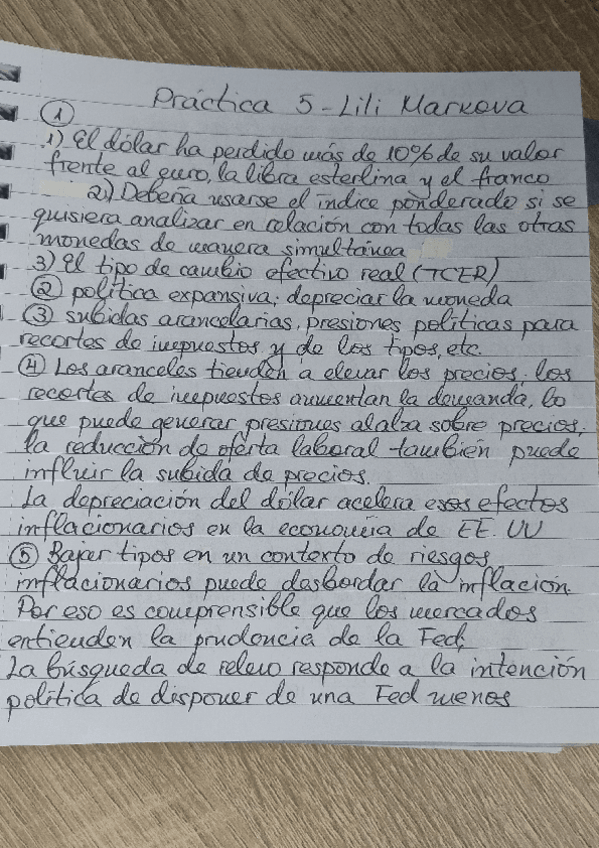 Práctica 5 - Lili Markova
①
1) El dólar ha perdido más de 10% de su valor
frente al euro, la libra esterlina y el franco
2) Debería usarse el índice ponderado si se
quisiera analizar en relación con todas las otras
monedas de manera simultánea
3) El tipo de cambio efectivo real (TCER)
② política expansiva; depreciar la moneda
③ subidas arancelarias, presiones políticas para
recortes de impuestos y de los tipos, etc.
④ Los aranceles tienden a elevar los precios; los
recortes de impuestos aumentan la demanda, lo
que puede generar presiones al alza sobre precios;
la reducción de oferta laboral también puede
influir la subida de precios.
La depreciación del dólar acelera esos efectos
inflacionarios en la economía de EE.UU
⑤ Bajar tipos en un contexto de riesgos
inflacionarios puede desbordar la inflación.
Por eso es comprensible que los mercados
entienden la prudencia de la Fed;
La búsqueda de relevo responde a la intención
política de disponer de una Fed menos